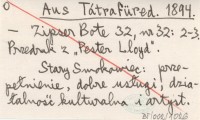 Aus Tátrafüred. 1894.
– Zipser Bote 32, nr 32: 2-3,
Przedruk z „Pester Lloyd".
Stary Smokowiec: prze-
pełnienie, dobre usługi, dzia-
łalność kulturalna i artyst.